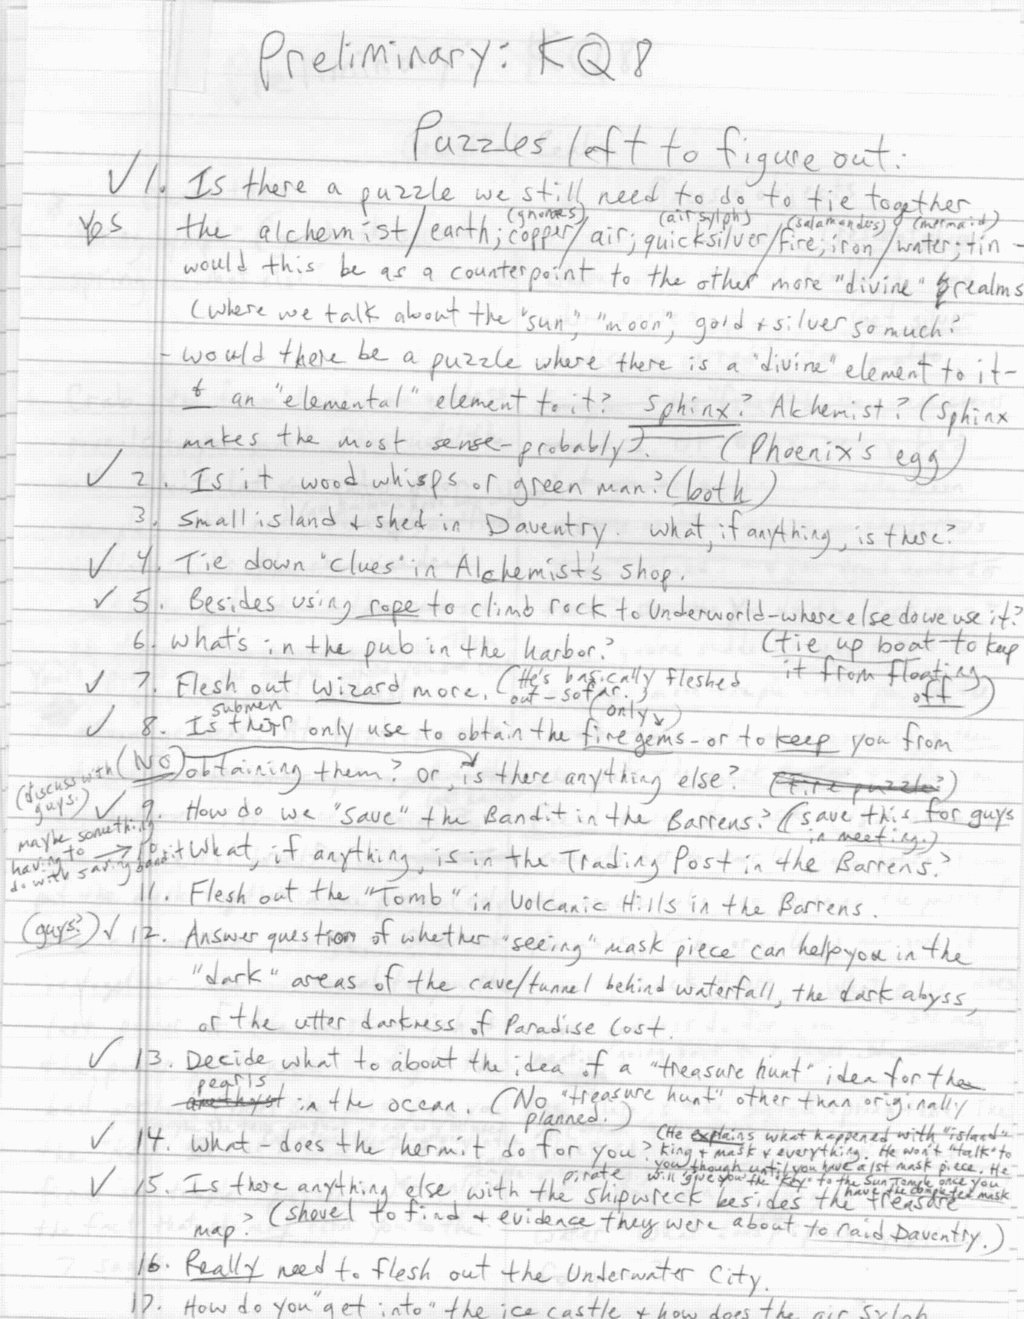 Preliminary: KQ8
Puzzles left to figure out:
✓ 1. Is there a puzzle we still need to do to tie together
Yes the alchemist/earth; copper/air; quicksilver/fire; iron/water; tin -
(gnomes) (air sylph) (salamanders) (mermaid)
would this be as a counterpoint to the other more "divine" realms
(where we talk about the "sun", "moon", gold + silver so much?
- would there be a puzzle where there is a "divine" element to it -
+ an "elemental" element to it? Sphinx? Alchemist? (Sphinx
makes the most sense - probably). (Phoenix's egg)
✓ 2. Is it wood whisps or green man? (both)
3. Small island + shed in Daventry. What, if anything, is there?
✓ 4. Tie down "clues" in Alchemist's shop.
✓ 5. Besides using rope to climb rock to Underworld - where else do we use it?
6. What's in the pub in the harbor? (tie up boat - to keep
it from floating
off)
✓ 7. Flesh out wizard more. (He's basically fleshed
out - so far.)
✓ 8. Is submen only use to obtain the fire gems - or to keep you from
(only)
(No) obtaining them? or, is there anything else? (fire puzzle?)
(discuss with guys.) ✓ 9. How do we "save" the Bandit in the Barrens? (save this for guys
in meeting.)
maybe something having to do with saving bandit → 10. What, if anything, is in the Trading Post in the Barrens?
11. Flesh out the "Tomb" in Volcanic Hills in the Barrens.
(guys?) ✓ 12. Answer question of whether "seeing" mask piece can help you in the
"dark" areas of the cave/tunnel behind waterfall, the dark abyss,
or the utter darkness of Paradise Lost.
✓ 13. Decide what to about the idea of a "treasure hunt" idea for the
pearls
amethyst in the ocean. (No "treasure hunt" other than originally
planned.)
✓ 14. What - does the hermit do for you? (He explains what happened with "island"
King + mask + everything. He won't "talk" to
you though until you have a 1st mask piece. He
will give you the "key" to the Sun Temple once you
have the completed mask
✓ 15. Is there anything else with the pirate shipwreck besides the treasure
map? (shovel to find + evidence they were about to raid Daventry.)
16. Really need to flesh out the Underwater City.
17. How do you "get into" the ice castle + how does the air sylph